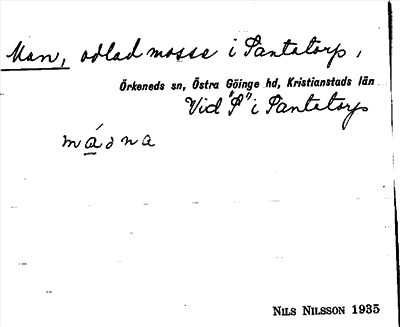 Man, odlad mosse i Tantatorp,
Örkeneds sn, Östra Göinge hd, Kristianstads län
Vid "P" i Tantatorp
máǝna
NILS NILSSON 1935